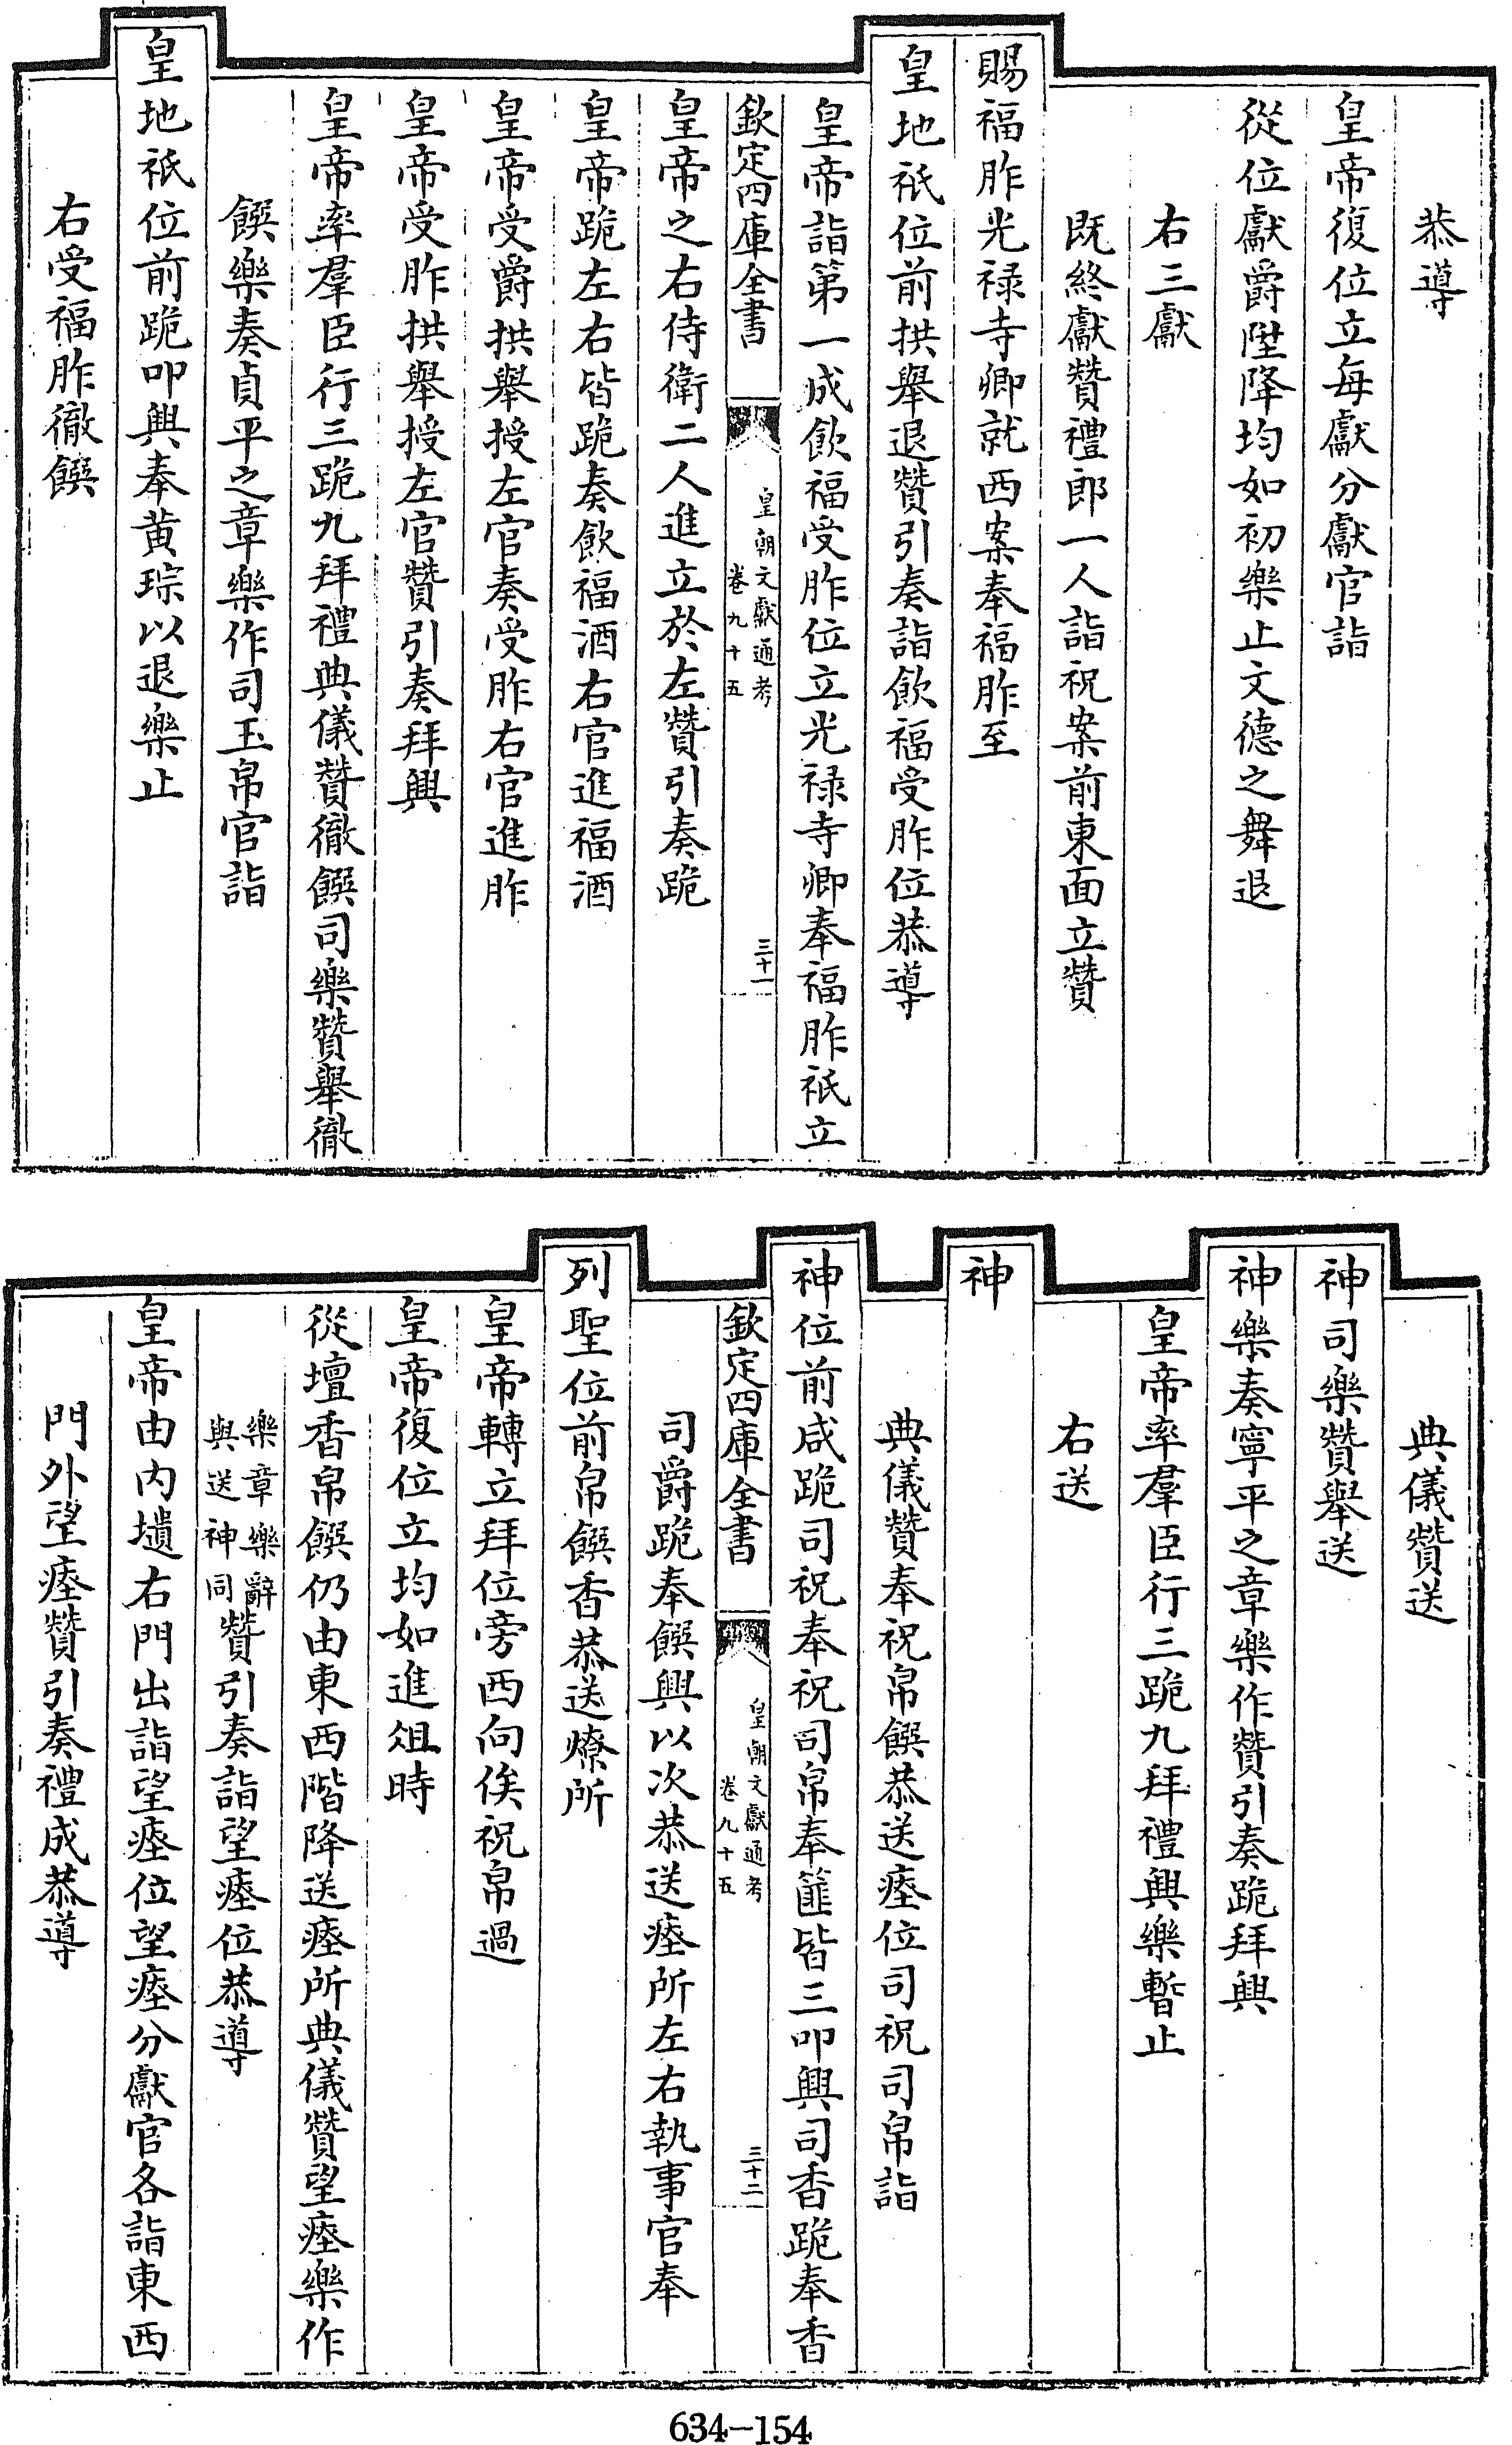 恭導
皇帝復位立每獻分獻官詣
從位獻爵陞降均如初樂止文德之舞退
右三獻
既終獻贊禮郎一人詣祝案前東面立贊
賜福胙光禄寺卿就西案奉福胙至
皇地祇位前拱舉退贊引奏詣飲福受胙位恭導
皇帝詣第一成飲福受胙位立光禄寺卿奉福胙祇立
欽定四庫全書
皇朝文獻通考
卷九十五
三十一
皇帝之右侍衛二人進立於左贊引奏跪
皇帝跪左右皆跪奏飲福酒右官進福酒
皇帝受爵拱舉授左官奏受胙右官進胙
皇帝受胙拱舉授左官贊引奏拜興
皇帝率羣臣行三跪九拜禮典儀贊徹饌司樂贊舉徹
饌樂奏貞平之章樂作司玉帛官詣
皇地祇位前跪叩興奉黄琮以退樂止
右受福胙徹饌
典儀贊送
神司樂贊舉送
神樂奏寧平之章樂作贊引奏跪拜興
皇帝率羣臣行三跪九拜禮興樂暫止
右送
神
典儀贊奉祝帛饌恭送瘞位司祝司帛詣
神位前咸跪司祝奉祝司帛奉篚皆三叩興司香跪奉香
欽定四庫全書
皇朝文獻通考
卷九十五
三十二
司爵跪奉饌興以次恭送瘞所左右執事官奉
列聖位前帛饌香恭送燎所
皇帝轉立拜位旁西向俟祝帛過
皇帝復位立均如進俎時
從壇香帛饌仍由東西階降送瘞所典儀贊望瘞樂作
樂章樂辭
與送神同
贊引奏詣望瘞位恭導
皇帝由内壝右門出詣望瘞位望瘞分獻官各詣東西
門外望瘞贊引奏禮成恭導
634-154